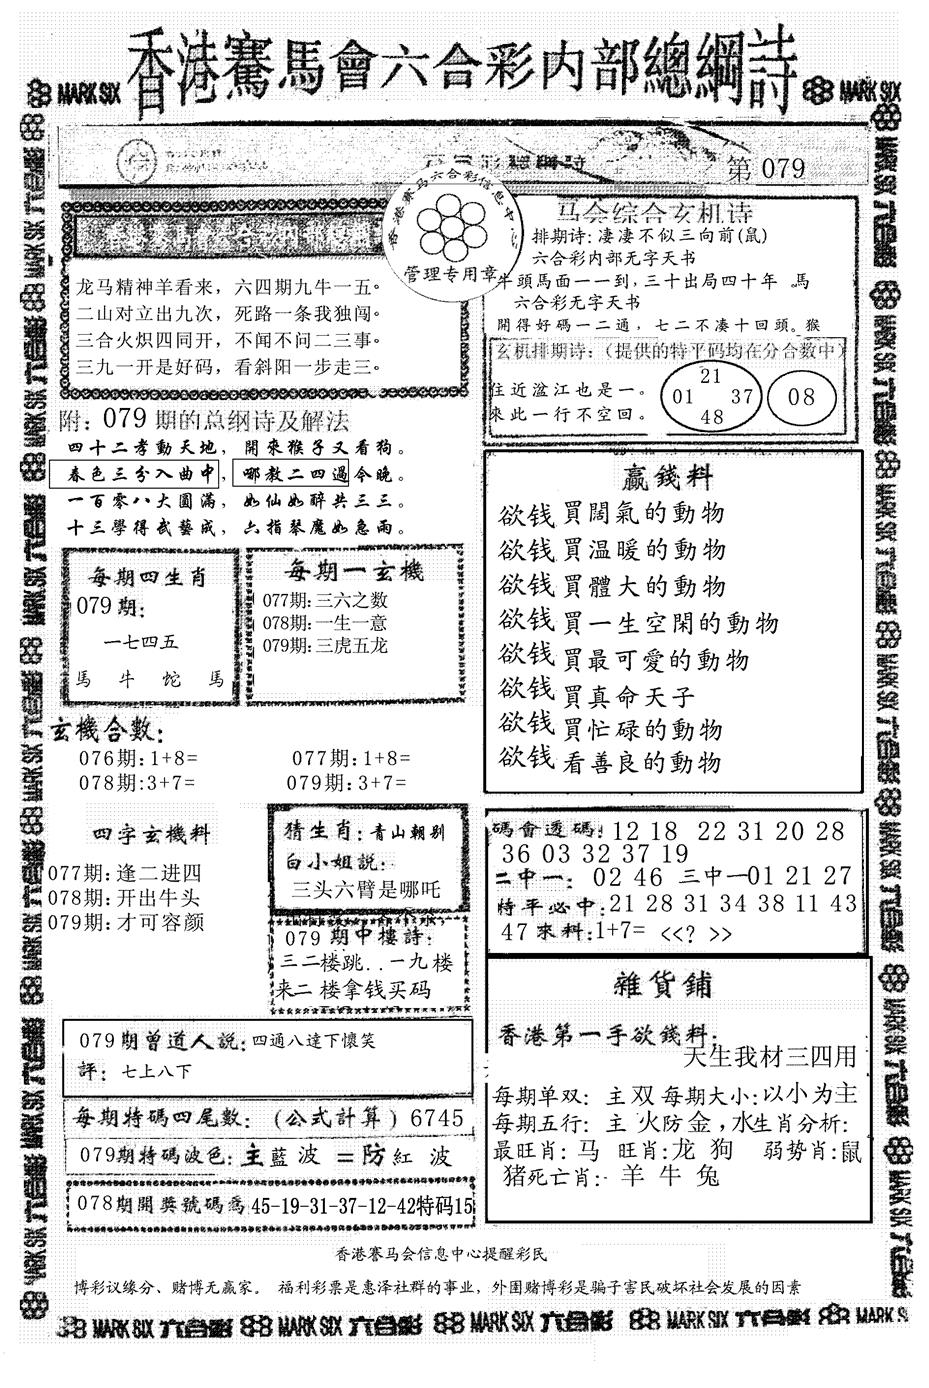 香港賽馬會六合彩内部總綱詩
MARK SIX
MARK SIX
第 079
香港赛马六合彩信息中心
管理专用章
龙马精神羊看来，六四期九牛一五。
二山对立出九次，死路一条我独闯。
三合火炽四同开，不闻不问二三事。
三九一开是好码，看斜阳一步走三。
马会综合玄机诗
排期诗: 凄凄不似三向前(鼠)
六合彩内部无字天书
牛頭馬面一一到, 三十出局四十年 。馬
六合彩无字天书
開得好碼一二通，七二不凑十回頭。猴
玄机排期诗:（提供的特平码均在分合数中）
住近湓江也是一。
來此一行不空回。
21
01 37
48
08
附: 079 期的总纲诗及解法
四十二孝動天地，開來猴子又看狗。
春色三分入曲中，哪教二四過今晚。
一百零八大圓滿，如仙如醉共三三。
十三學得武藝成，六指琴魔如急雨。
每期四生肖
079期:
一七四五
馬 牛 蛇 馬
每期一玄機
077期: 三六之数
078期: 一生一意
079期: 三虎五龙
玄機合數:
076期: 1+8= 077期: 1+8=
078期: 3+7= 079期: 3+7=
四字玄機料
077期: 逢二进四
078期: 开出牛头
079期: 才可容颜
猜生肖: 青山朝别
白小姐説:
三头六臂是哪吒
079 期中樓詩:
三二楼跳. . 一九楼
来二楼拿钱买码
079期曾道人説: 四通八達下懷笑
評: 七上八下
每期特碼四尾數: (公式計算) 6745
079期特碼波色: 主藍波 = 防紅 波
078期開獎號碼爲 45-19-31-37-12-42特码15
赢錢料
欲钱買闊氣的動物
欲钱買温暖的動物
欲钱買體大的動物
欲钱買一生空閑的動物
欲钱買最可愛的動物
欲钱買真命天子
欲钱買忙碌的動物
欲钱看善良的動物
碼會透碼: 12 18 22 31 20 28
36 03 32 37 19
二中一: 02 46 三中一01 21 27
特平必中: 21 28 31 34 38 11 43
47 來料: 1+7= <<? >>
雜貨鋪
香港第一手欲錢料:
天生我材三四用
每期单双: 主双 每期大小: 以小为主
每期五行: 主 火防金 , 水生肖分析:
最旺肖: 马 旺肖: 龙 狗 弱势肖: 鼠
猪死亡肖: 羊 牛 兔
香港赛马会信息中心提醒彩民
博彩议缘分、赌博无赢家。 福利彩票是惠泽社群的事业，外围赌博彩是骗子害民破坏社会发展的因素
MARK SIX 六合彩 MARK SIX 六合彩 MARK SIX 六合彩 MARK SIX 六合彩 MARK SIX